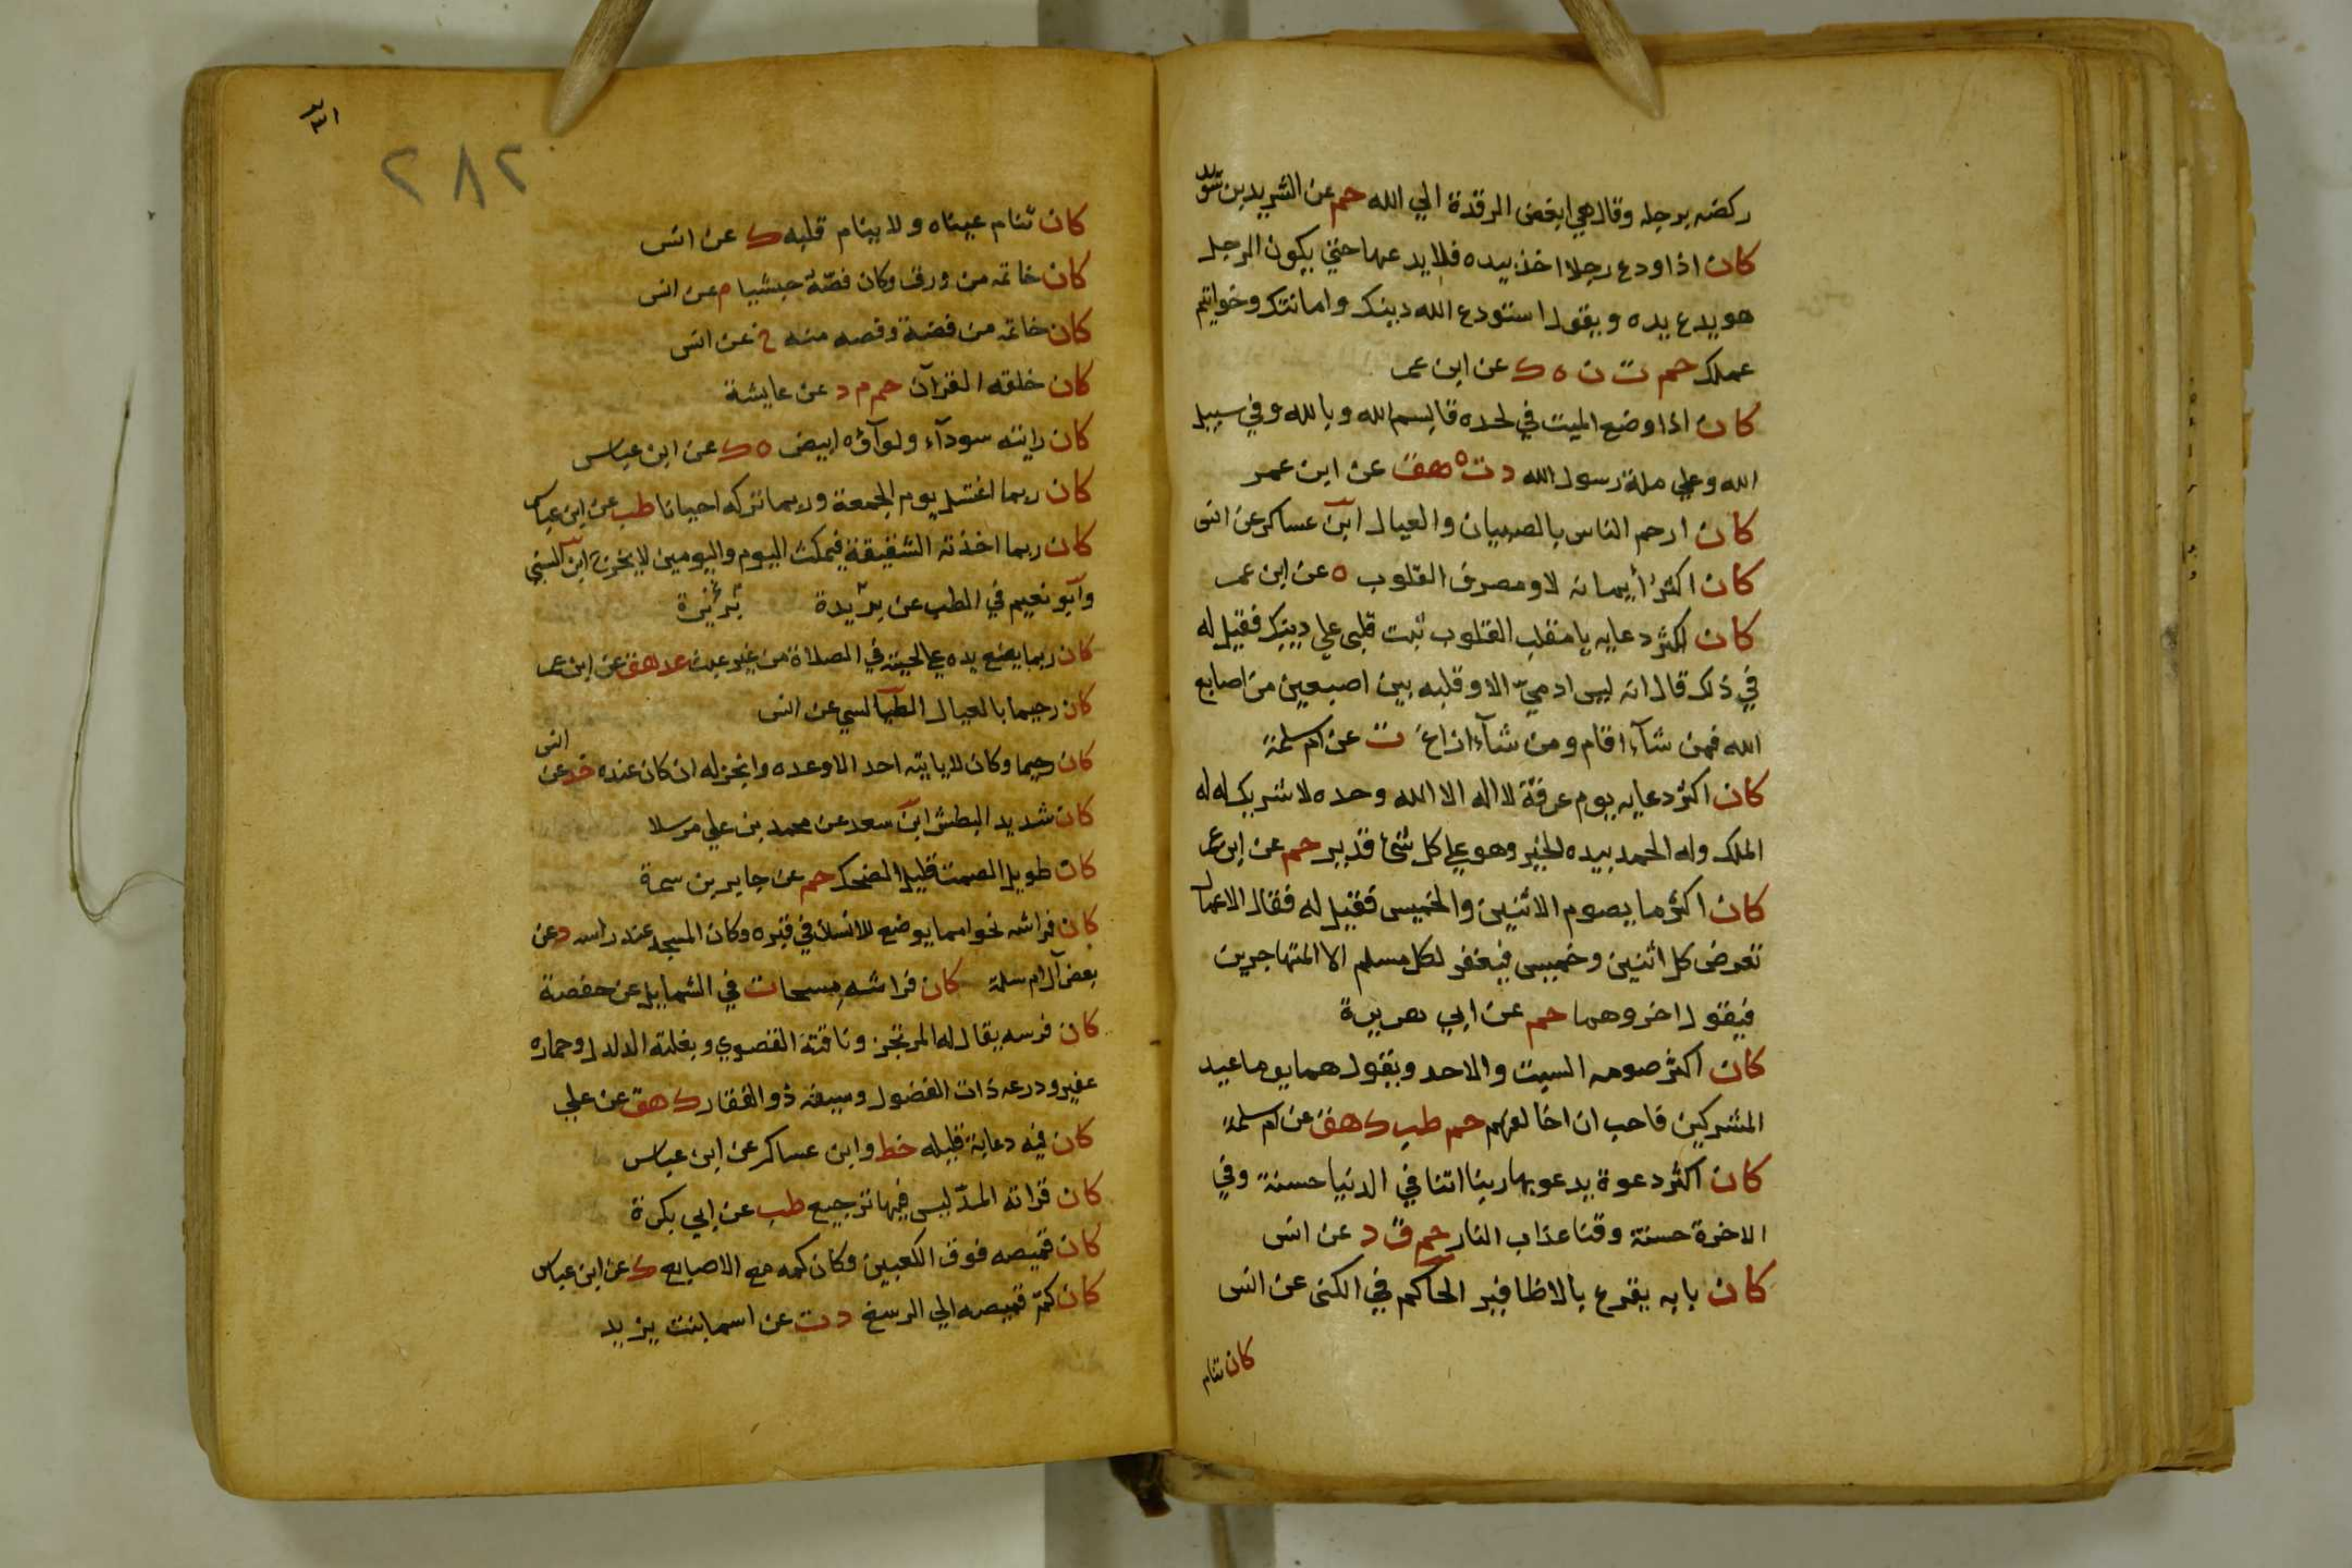 ركضه برجله وقال هي ابغض الرقدة الي الله حم عن الشريد بن سويد
كان اذا ودع رجلا اخذ بيده فلا يدعها حتي يكون الرجل
هو يدع يده ويقول استودع الله دينك وامانتك وخواتيم
عملك حم ت ن ه ك عن ابن عمر
كان اذا وضع الميت في لحده قال بسم الله وبالله وفي سبيل
الله وعلي ملة رسول الله د ت ه هق عن ابن عمر
كان ارحم الناس بالصبيان والعيال ابن عساكر عن انس
كان اكثر أيمانه لا ومصرف القلوب ه عن ابن عمر
كان اكثر دعايه يا مقلب القلوب ثبت قلبي علي دينك فقيل له
في ذلك قال انه ليس ادميّ الا وقلبه بين اصبعين من اصابع
الله فمن شآء اقام ومن شآء ازاغ ت عن ام سلمة
كان اكثر دعايه يوم عرفة لا اله الا الله وحده لا شريك له له
الملك وله الحمد بيده الخير وهو علي كل شئ قدير حم عن ابن عمر
كان اكثر ما يصوم الاثنين والخميس فقيل له فقال الاعمال
تعرض كل اثنين وخميس فيغفر لكل مسلم الا المتهاجرين
فيقول اخروهما حم عن ابي هريرة
كان اكثر صومه السبت والاحد ويقول هما يوما عيد
المشركين فاحب ان اخالفهم حم طب ك هق عن ام سلمة
كان اكثر دعوة يدعو بها ربنا اتنا في الدنيا حسنة وفي
الاخرة حسنة وقنا عذاب النار حم ق د عن انس
كان بابه يقرع بالاظافير الحاكم في الكنى عن انس
كان تنام
٢٨٢
كان تنام عيناه ولا ينام قلبه ك عن انس
كان خاتمه من ورق وكان فصّه حبشيا م عن انس
كان خاتمه من فضة وفصه منه خ عن انس
كان خلقه القرآن حم م د عن عايشة
كان رايته سودآء ولوآؤه ابيض ه ك عن ابن عباس
كان ربما اغتسل يوم الجمعة وربما تركه احيانا طب عن ابن عباس
كان ربما اخذته الشقيقة فيمكث اليوم واليومين لا يخرج ابن السني
وابو نعيم في الطب عن بريدة
كان ربما يضع يده علي لحيته في الصلاة من غير عبث عد هق عن ابن عمر
كان رحيما بالعيال الطيالسي عن انس
كان رحيما وكان لا ياتيه احد الا وعده وانجز له ان كان عنده خد عن انس
كان شديد البطش ابن سعد عن محمد بن علي مرسلا
كان طويل الصمت قليل الضحك حم عن جابر بن سمرة
كان فراشه نحوا مما يوضع للانسان في قبره وكان المسجد عند راسه د عن
بعض آل ام سلمة كان فراشه مسحا ت في الشمايل عن حفصة
كان فرسه يقال له المرتجز وناقته القصوي وبغلته الدلدل وحماره
عفير ودرعه ذات الفضول وسيفه ذو الفقار ك هق عن علي
كان فيه دعابة قليله خط وابن عساكر عن ابن عباس
كان قراته المدّ ليس فيها ترجيع طب عن ابي بكرة
كان قميصه فوق الكعبين وكان كمه مع الاصابع ك عن ابن عباس
كان كمّ قميصه الي الرسغ د ت عن اسما بنت يزيد